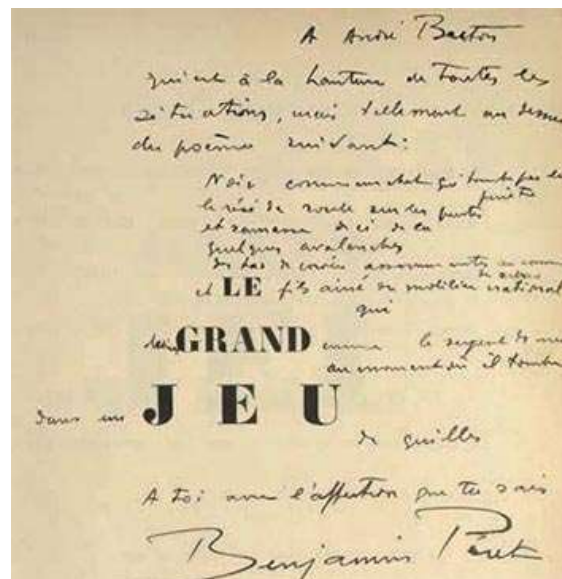 A André Breton
qui est à la hauteur de toutes les
situations, mais tellement au dessus
du poème suivant:
Noir comme un chat qui tombe par la
fenêtre
le rési de roule sur les pentes
et ramasse de ci de là
quelques avalanches
des tas de
et LE fils ainé du mobilier national
qui
GRAND comme le sergent de
au moment où il tombe
dans un JEU
de quilles
A toi avec l'affection que tu sais
Benjamin Péret